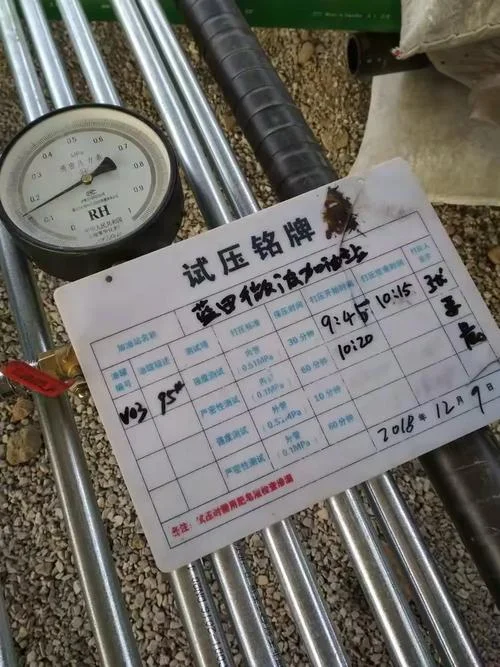 MPa
0
0.1
0.2
0.3
0.4
0.5
0.6
0.7
0.8
0.9
1
RH
试压铭牌
加油站名称
油罐编号 油罐描述 测试项 打压标准 保压时间 打压开始时间 打压结束时间 打压人签字
V03 95# 强度测试 内管（0.51MPa） 30分钟 9:45 10:15
严密性测试 内管（0.1MPa） 60分钟 10:20
强度测试 外管 10分钟
严密性测试 外管（0.1MPa） 60分钟
2018年12月9日
备注：试压时需用肥皂液检查渗漏